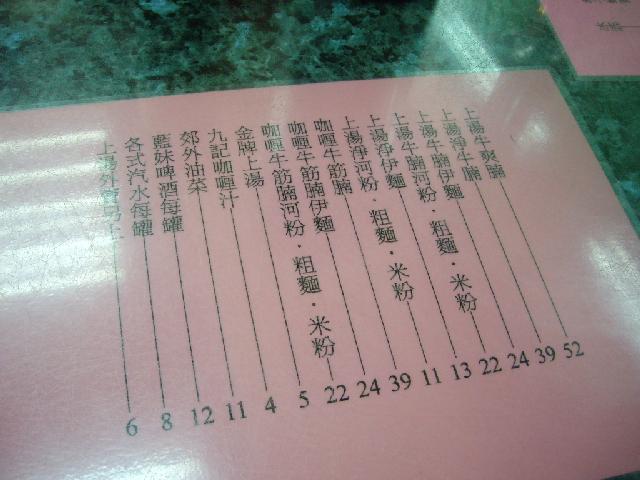 上湯牛爽腩 52
上湯淨牛腩 39
上湯牛腩伊麵 24
上湯牛腩河粉．粗麵．米粉 22
上湯淨伊麵 13
上湯淨河粉．粗麵．米粉 11
咖喱牛筋腩 39
咖喱牛筋腩伊麵 24
咖喱牛筋腩河粉．粗麵．米粉 22
金牌上湯 5
九記咖喱汁 4
郊外油菜 11
藍妹啤酒每罐 12
各式汽水每罐 8
上湯外賣 6